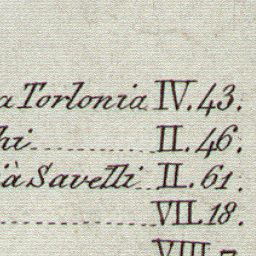 a Torlonia IV. 43.
hi II. 46.
à Savelli II. 61.
VII. 18.
VIII. 7